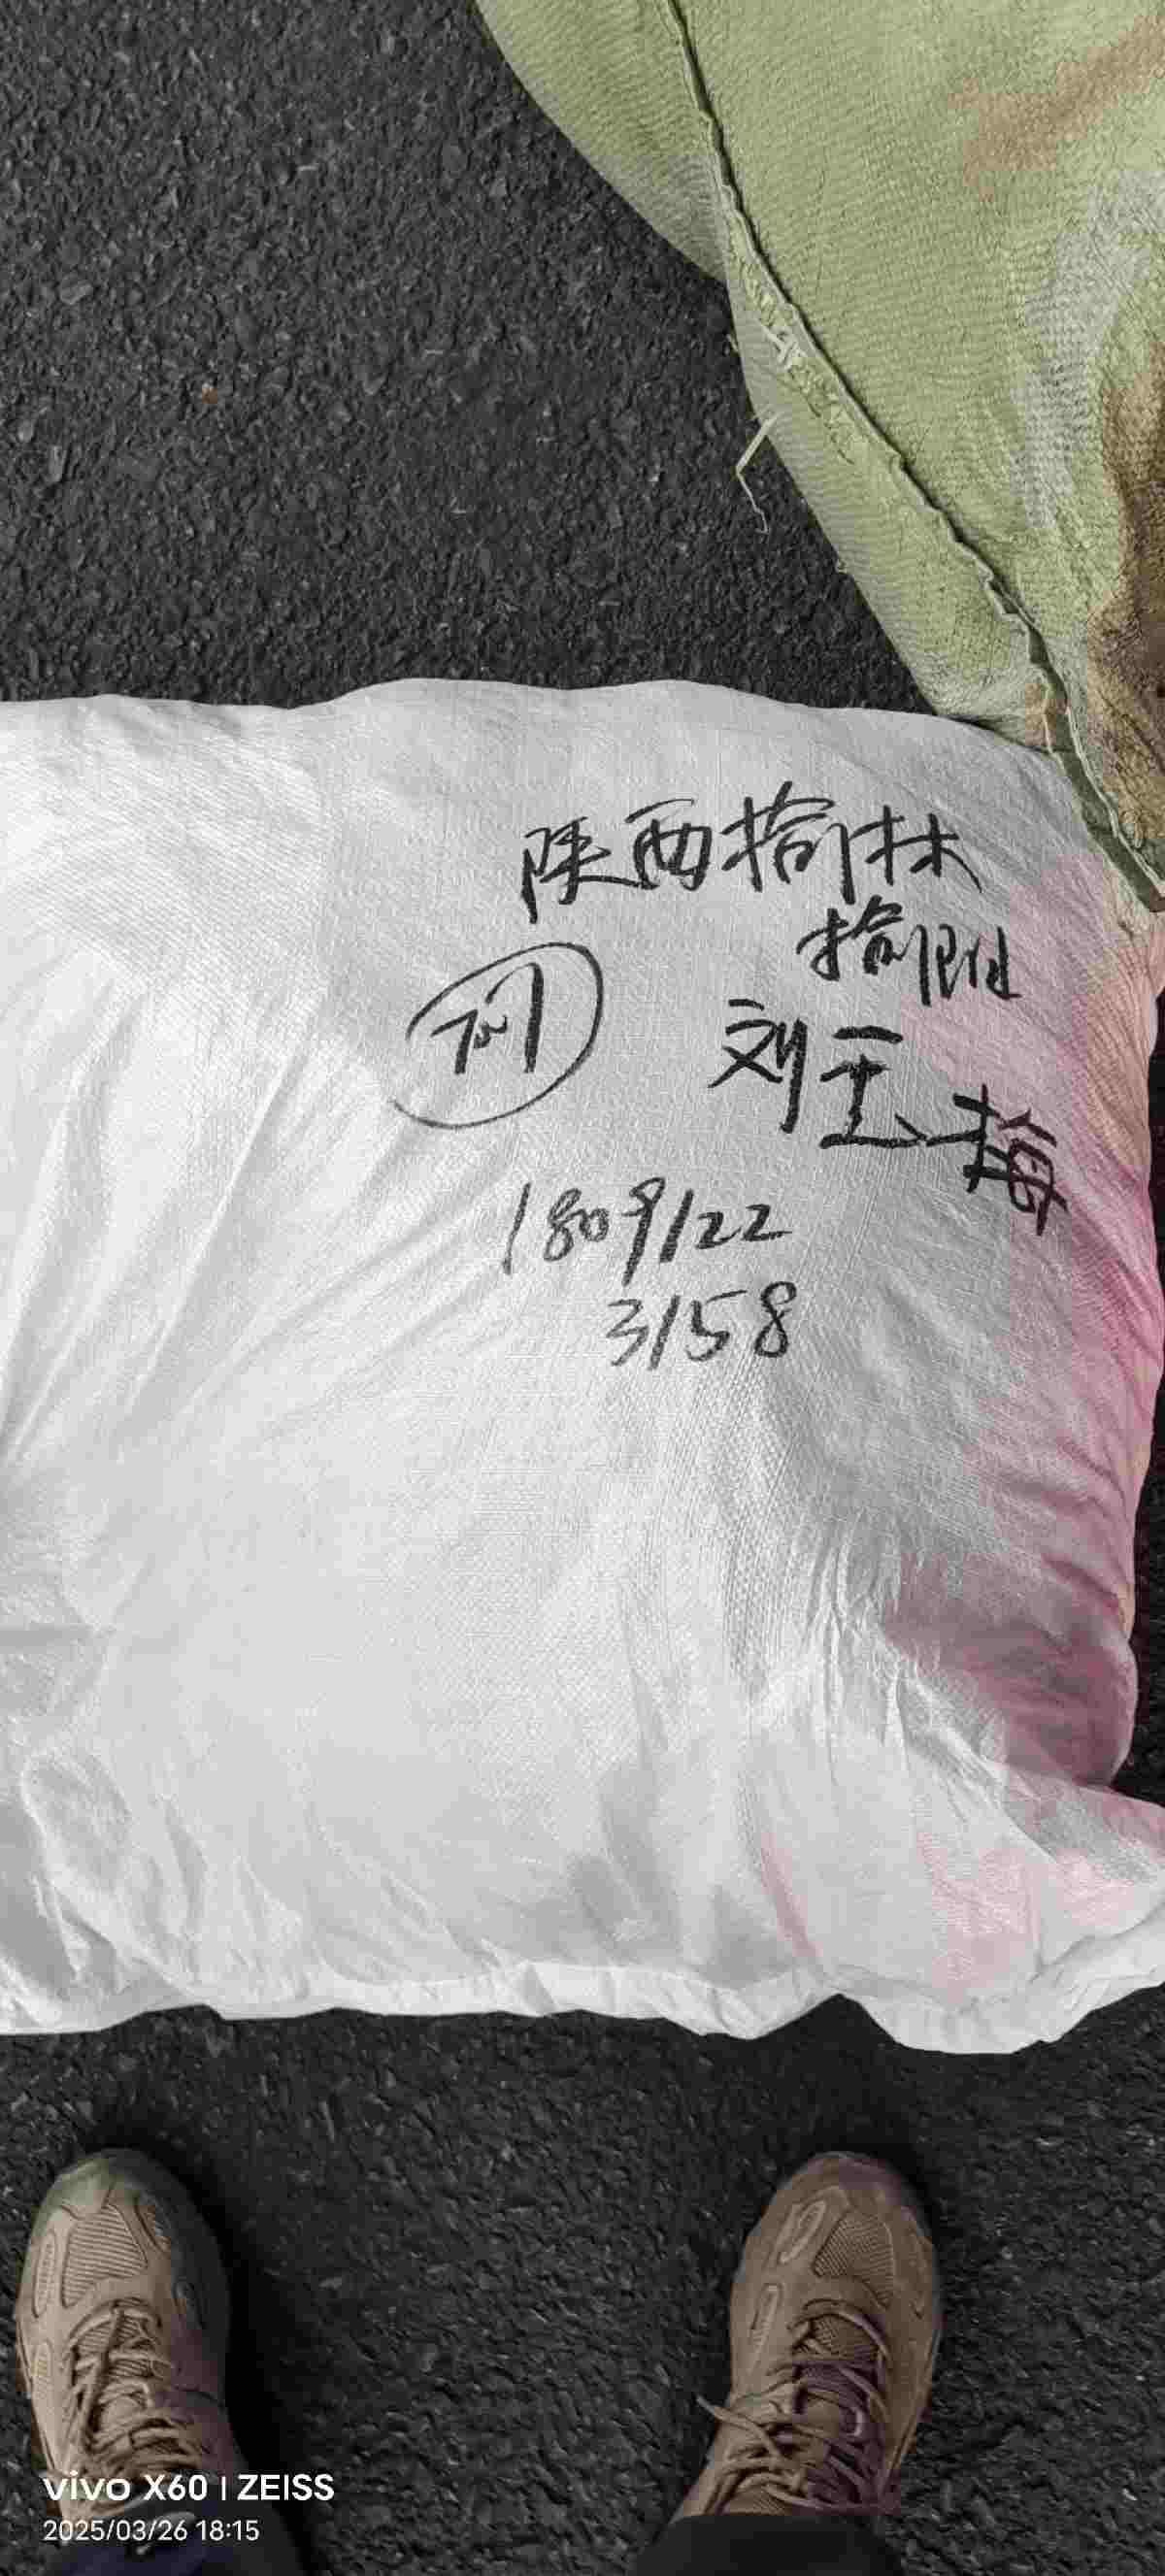 陕西榆林
榆阳
刘玉梅
1809122
3158
vivo X60 | ZEISS
2025/03/26 18:15